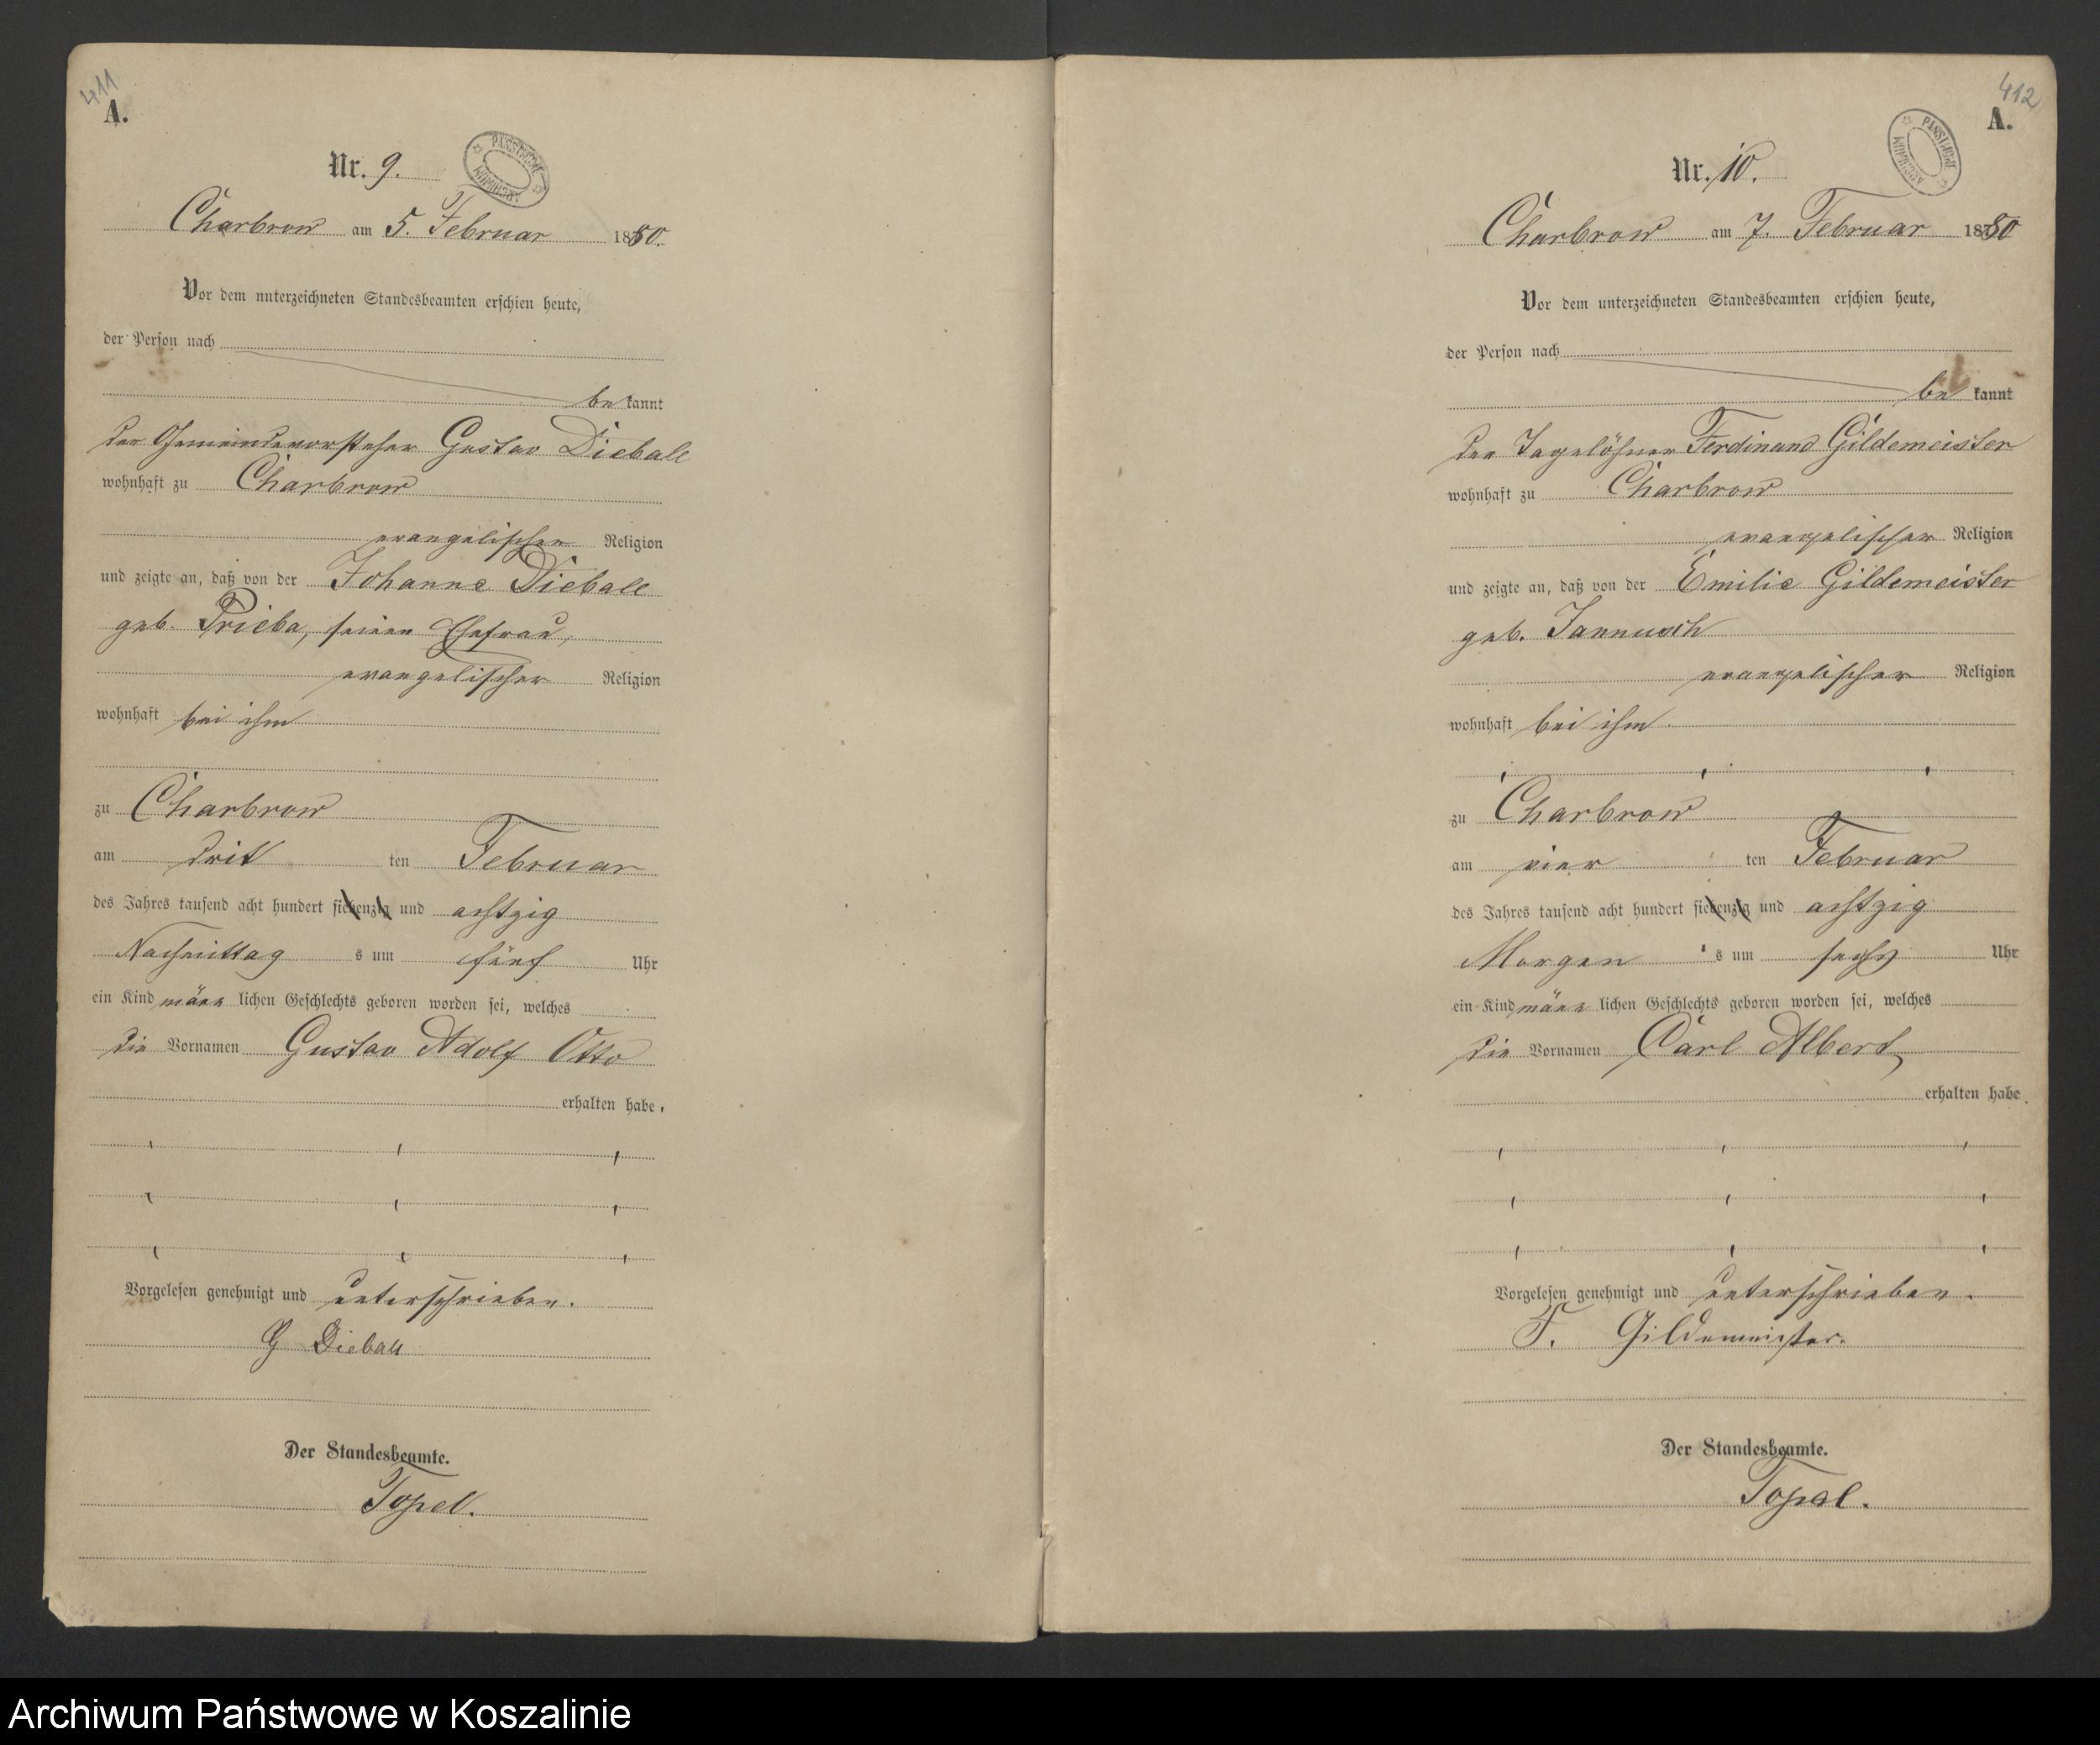 411
A.
Nr. 9.
Charbrow am 5. Februar 1880.
Vor dem unterzeichneten Standesbeamten erschien heute,
der Person nach
be kannt
der Gemeindevorsteher Gustav Dieball
wohnhaft zu Charbrow
evangelischer Religion
und zeigte an, daß von der Johanne Dieball
geb. Prieba, seiner Ehefrau,
evangelischer Religion
wohnhaft bei ihm
zu Charbrow
am drit ten Februar
des Jahres tausend acht hundert siebenzig und achtzig
Nachmittag s um fünf Uhr
ein Kind männ lichen Geschlechts geboren worden sei, welches
die Vornamen Gustav Adolf Otto
erhalten habe.
Vorgelesen genehmigt und unterschrieben.
G Dieball
Der Standesbeamte.
Topel.
412
A.
Nr. 10.
Charbrow am 7. Februar 1880
Vor dem unterzeichneten Standesbeamten erschien heute,
der Person nach
be kannt
der Tagelöhner Ferdinand Gildemeister
wohnhaft zu Charbrow
evangelischer Religion
und zeigte an, daß von der Emilie Gildemeister
geb. Jannusch
evangelischer Religion
wohnhaft bei ihm
zu Charbrow
am vier ten Februar
des Jahres tausend acht hundert siebenzig und achtzig
Morgen s um sechs Uhr
ein Kind männ lichen Geschlechts geboren worden sei, welches
die Vornamen Carl Albert,
erhalten habe.
Vorgelesen genehmigt und unterschrieben.
F. Gildemeister.
Der Standesbeamte.
Topel.
Archiwum Państwowe w Koszalinie